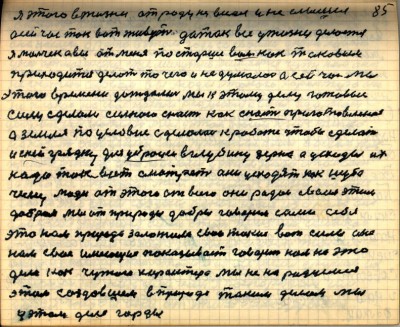 я этого в жизни от роду не видел и не слышал 85
а сейчас так вот живут да так все у жизни делается
я молчек а вы от меня по старше вам как таковым
приходится делать то чего и не думалось а сейчас мы
этого времени дождались мы к этому делу готовые
силы сделали сильного снать как снать приготовленное
а земля по условие сделалась к работе чтобы сделать
и ней грядку для уброски в глубину зерна а уходы их
надо так вот смотреть они уходят как нужно
человеку люди от этого от всего они рады своим этим
добрым мы от природы добры говорим сами себя
это нам природа заложила свои такие вот силы она
нам свое имеющие показывает говорит нам на это
дело как чужого характера мы не на радуемся
этим создавшем в природе таким делом мы
у этом деле горды